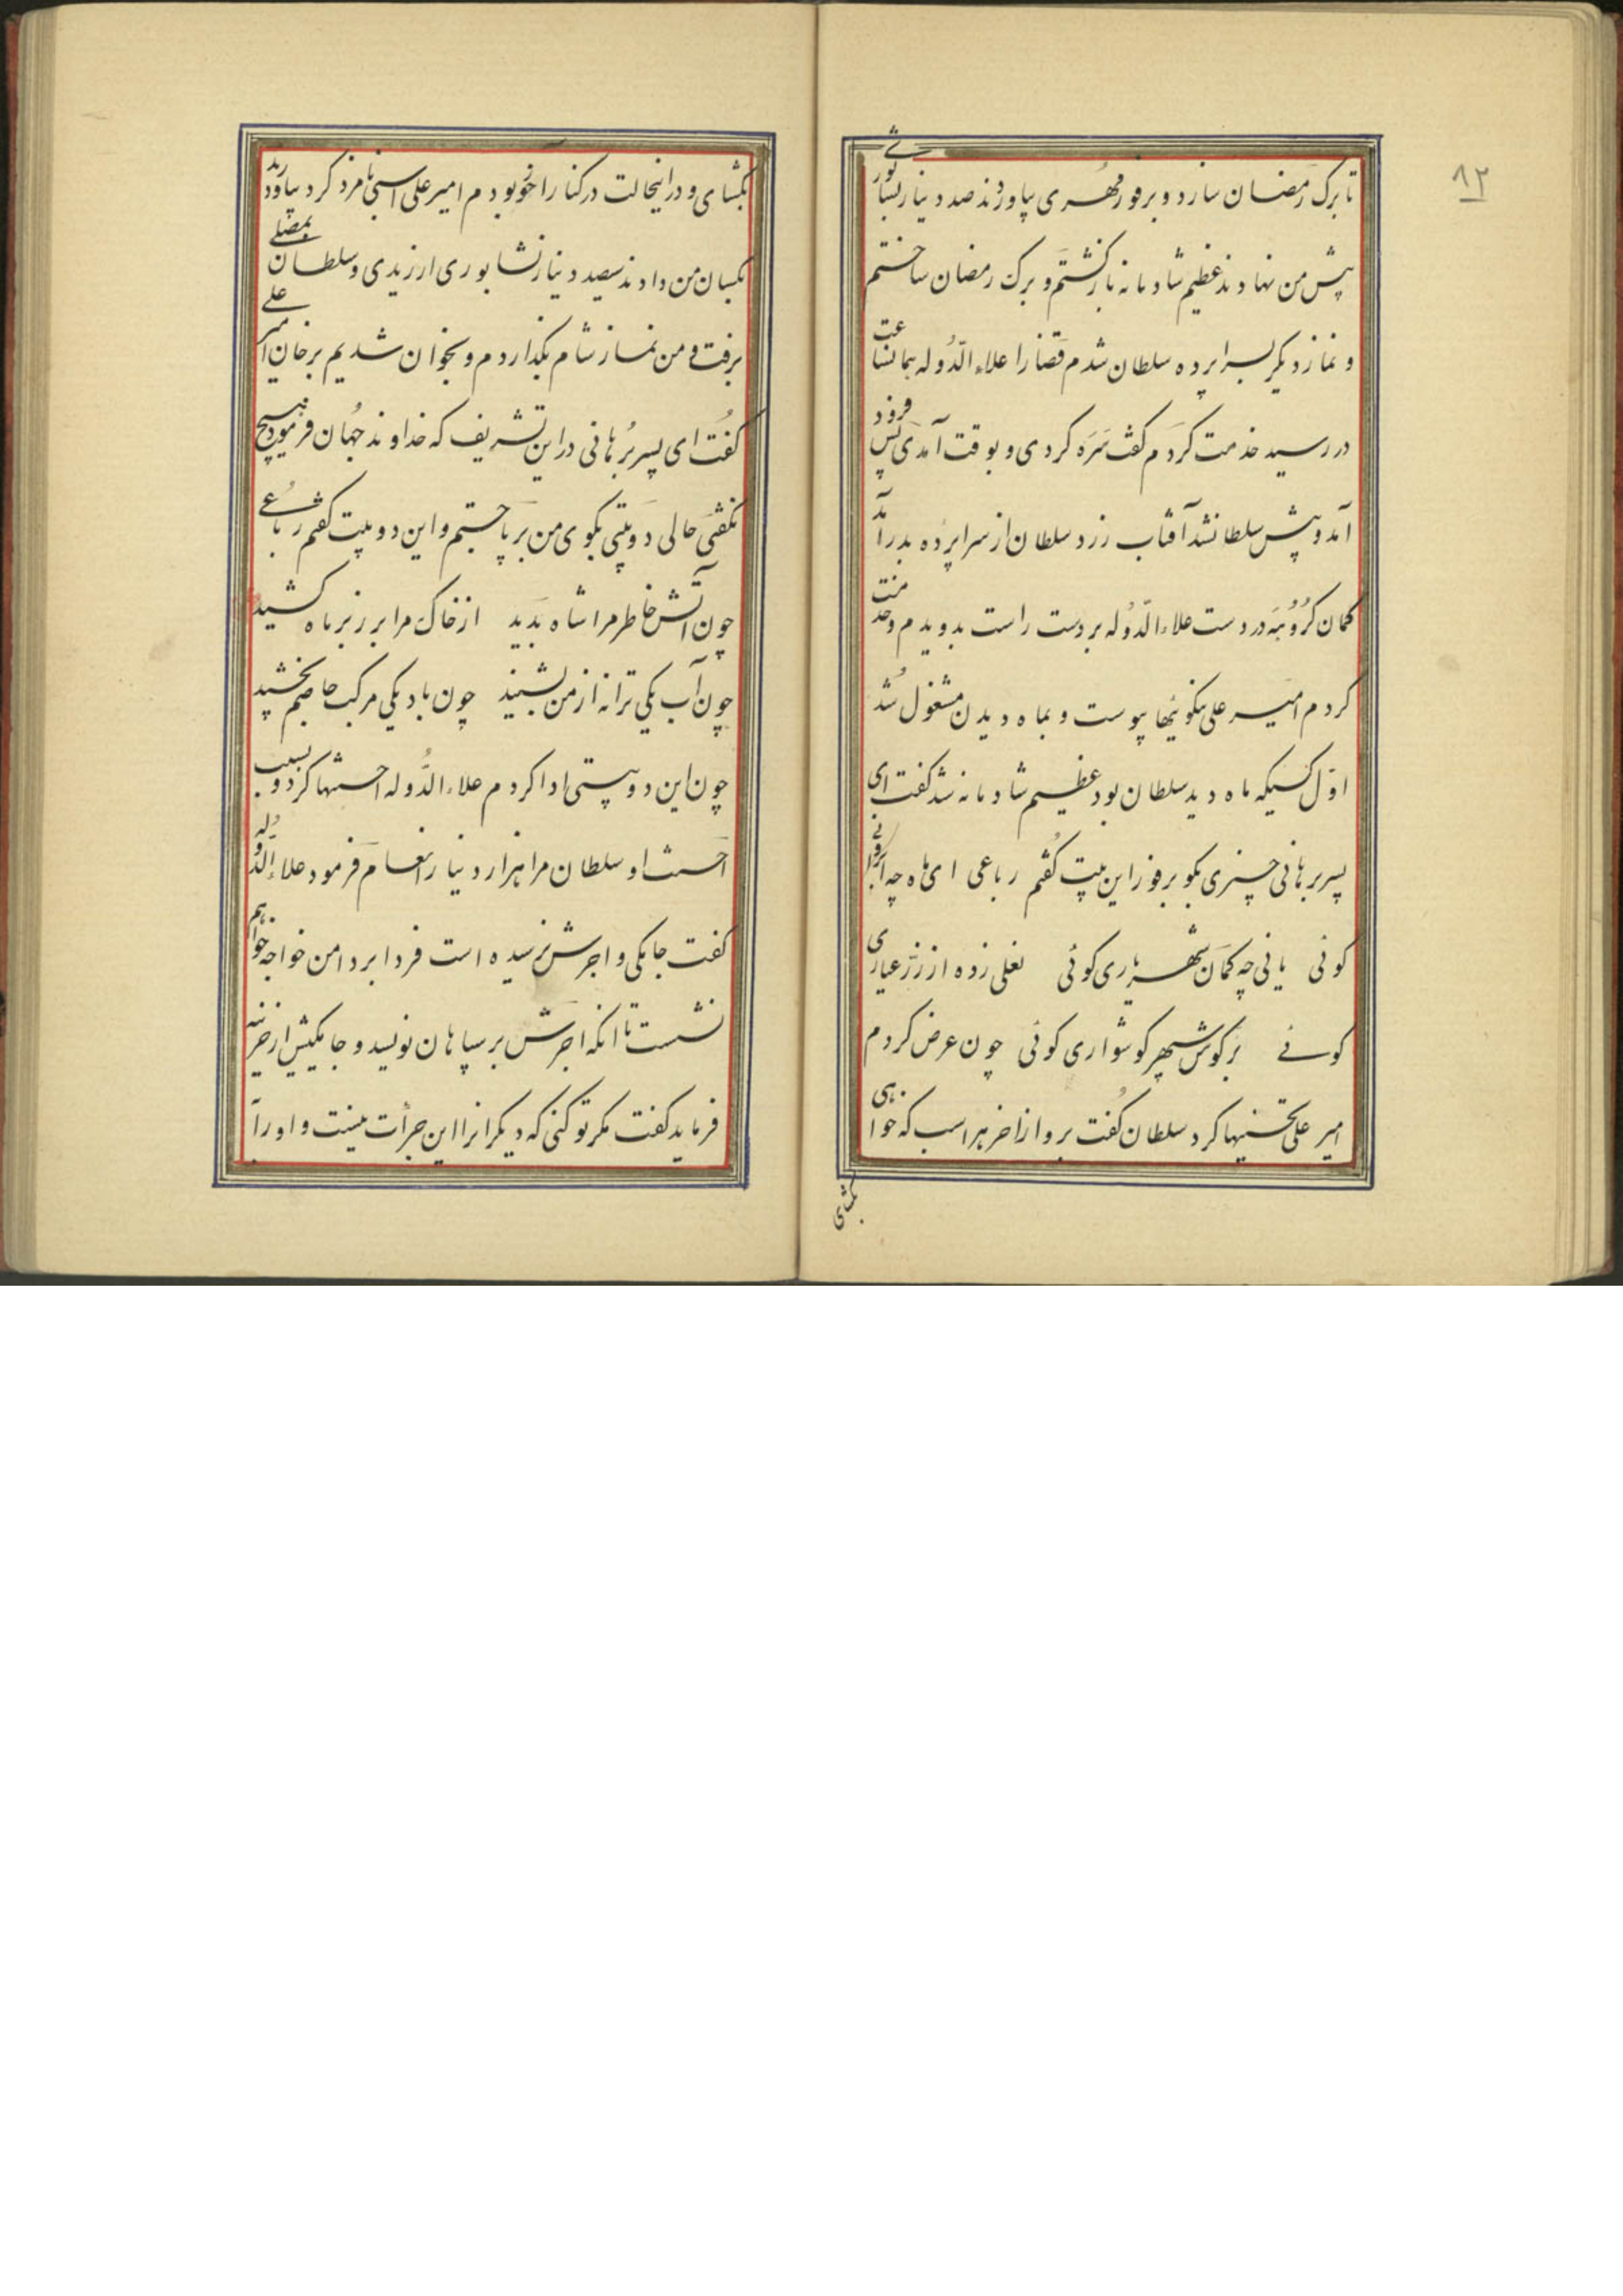 ۸۲
تا برک رمضان سازد و بر فور مهری بیاوردند صد دینار نشابوری
پیش من نهادند عظیم شادمانه بازکشتم و برک رمضان ساختم
و نماز دیکر بسراپرده سلطان شدم قضا را علاء الدّوله بهمانساعت
در رسید خدمت کردم کفت سَرَه کردی و بوقت آمدی پس فرود
آمد و پیش سلطان شد آفتاب زرد سلطان از سراپرده بدر آمد
کمان کروُبهَ در دست علاء الدّوله بر دست راست بدویدم و خدمت
کردم امیر علی نکوئیها پیوست و بماه دیدن مشغول شُد
اوّل کسیکه ماه دید سلطان بود عظیم شادمانه شد کفت ای
پسر برهانی چیزی بکو بر فور این بیت کُفتم رباعی ای ماه چه ابروان
کوئی یا نی چه کمان شهریاری کوئی نعلی زده از زر عیاری
کوئے بَر کوش سپهر کوشواری کوئی چون عرض کردم
امیر علی تحسینها کرد سلطان کُفت برو از آخر هر اسب که خواهی
بکشای
بکشای و در اینحالت در کنار آخور بودم امیر علی اسبی نامزد کرد بیاوردند
بکسان من دادند سیصد دینار نشابوری ارزیدی و سلطان بمصلی
برفت و من نماز شام بکذاردم و بخوان شدیم بر خان امیر علی
کُفت ای پسر بُرهانی در این تشریف که خداوند جهُان فرمود هیچ
نکفتی حالی دو بیتی بکوی من بر پا جستم و این دو بیت کفتم رباعُے
چون آتش خاطر مرا شاه بَدید از خاک مرا بر زبر ماه کشید
چون آب یکی ترانه از من بشنید چون باد یکی مرکب خاصم بخشید
چون این دو بیتی ادا کردم علاء الدُّوله احسنتها کرد و بسبب
اَحسنت او سلطان مرا هزار دینار انعام فرمود علاء الدَّوله
کفت جامکی و اجرش نرسیده است فردا بر دامن خواجه خواهم
نشست تا انکه اجرَش بر سپاهان نویسد و جامکیش از خزینه
فرماید کفت مکر تو کنی که دیکرانرا این جرأت نیست و او را